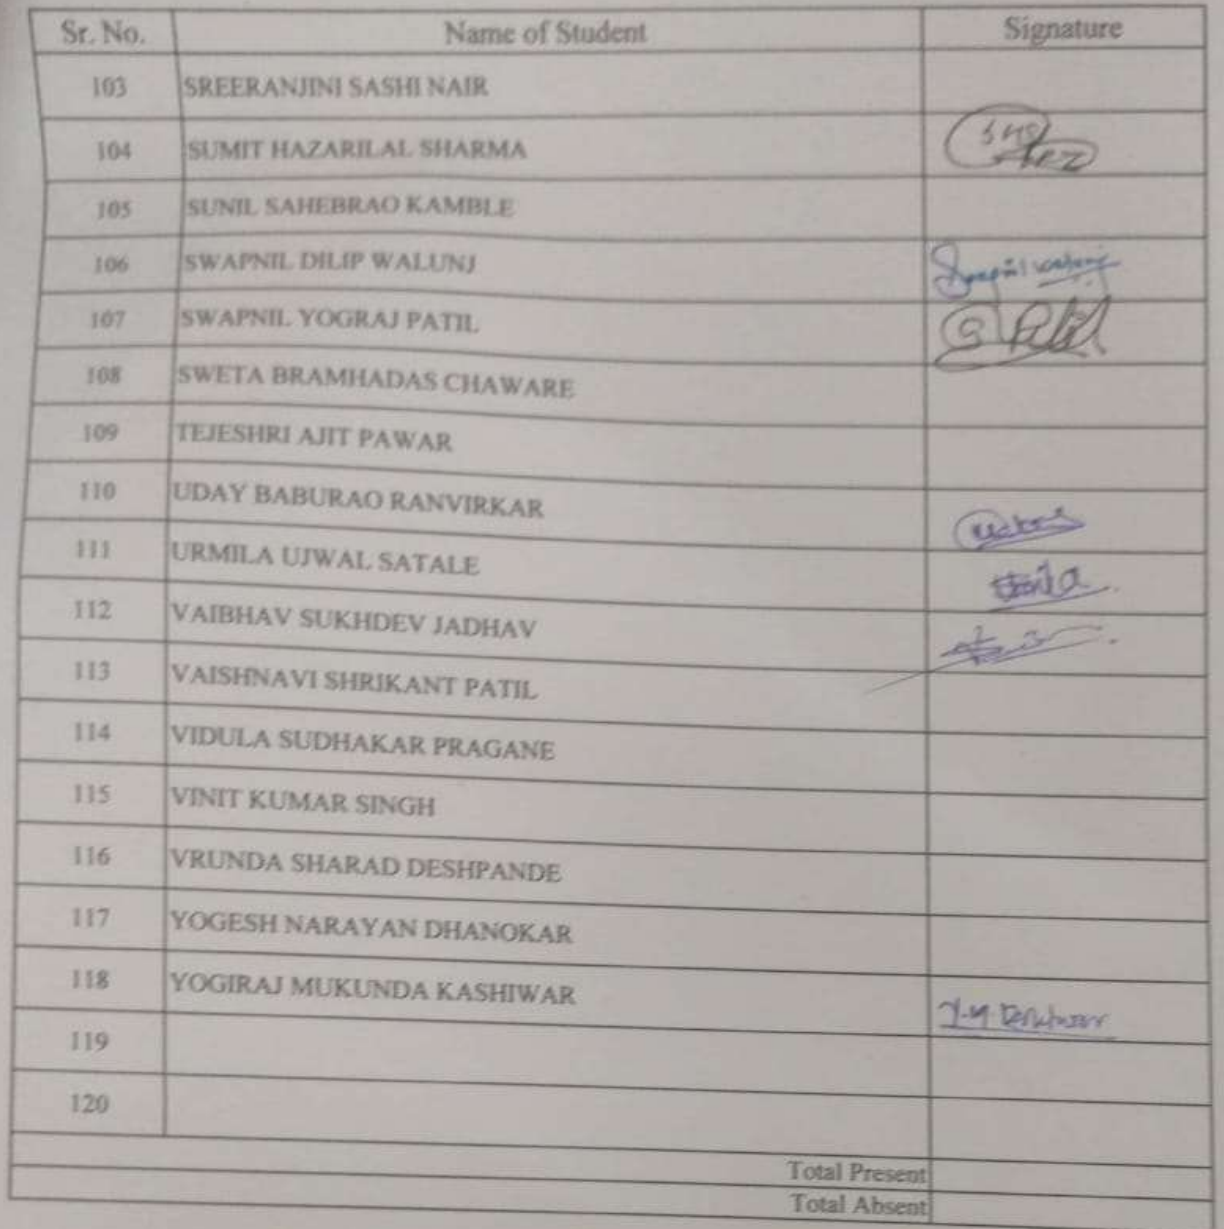 Sr. No. Name of Student Signature
103 SREERANJINI SASHI NAIR
104 SUMIT HAZARILAL SHARMA
105 SUNIL SAHEBRAO KAMBLE
106 SWAPNIL DILIP WALUNJ
107 SWAPNIL YOGRAJ PATIL
108 SWETA BRAMHADAS CHAWARE
109 TEJESHRI AJIT PAWAR
110 UDAY BABURAO RANVIRKAR
111 URMILA UJWAL SATALE
112 VAIBHAV SUKHDEV JADHAV
113 VAISHNAVI SHRIKANT PATIL
114 VIDULA SUDHAKAR PRAGANE
115 VINIT KUMAR SINGH
116 VRUNDA SHARAD DESHPANDE
117 YOGESH NARAYAN DHANOKAR
118 YOGIRAJ MUKUNDA KASHIWAR
119
120
Total Present
Total Absent